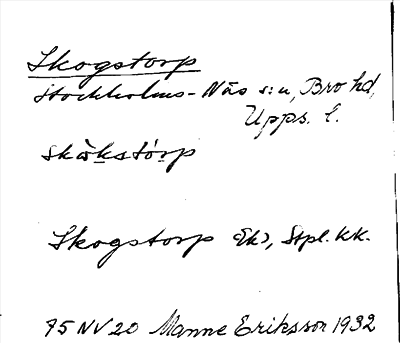 Skogstorp
Stockholms-Näs s:n, Bro hd,
Upps. l.
skò̱kstó̱rp
Skogstorp Ek), Stpl. kk.
75 NV 20 Manne Eriksson 1932